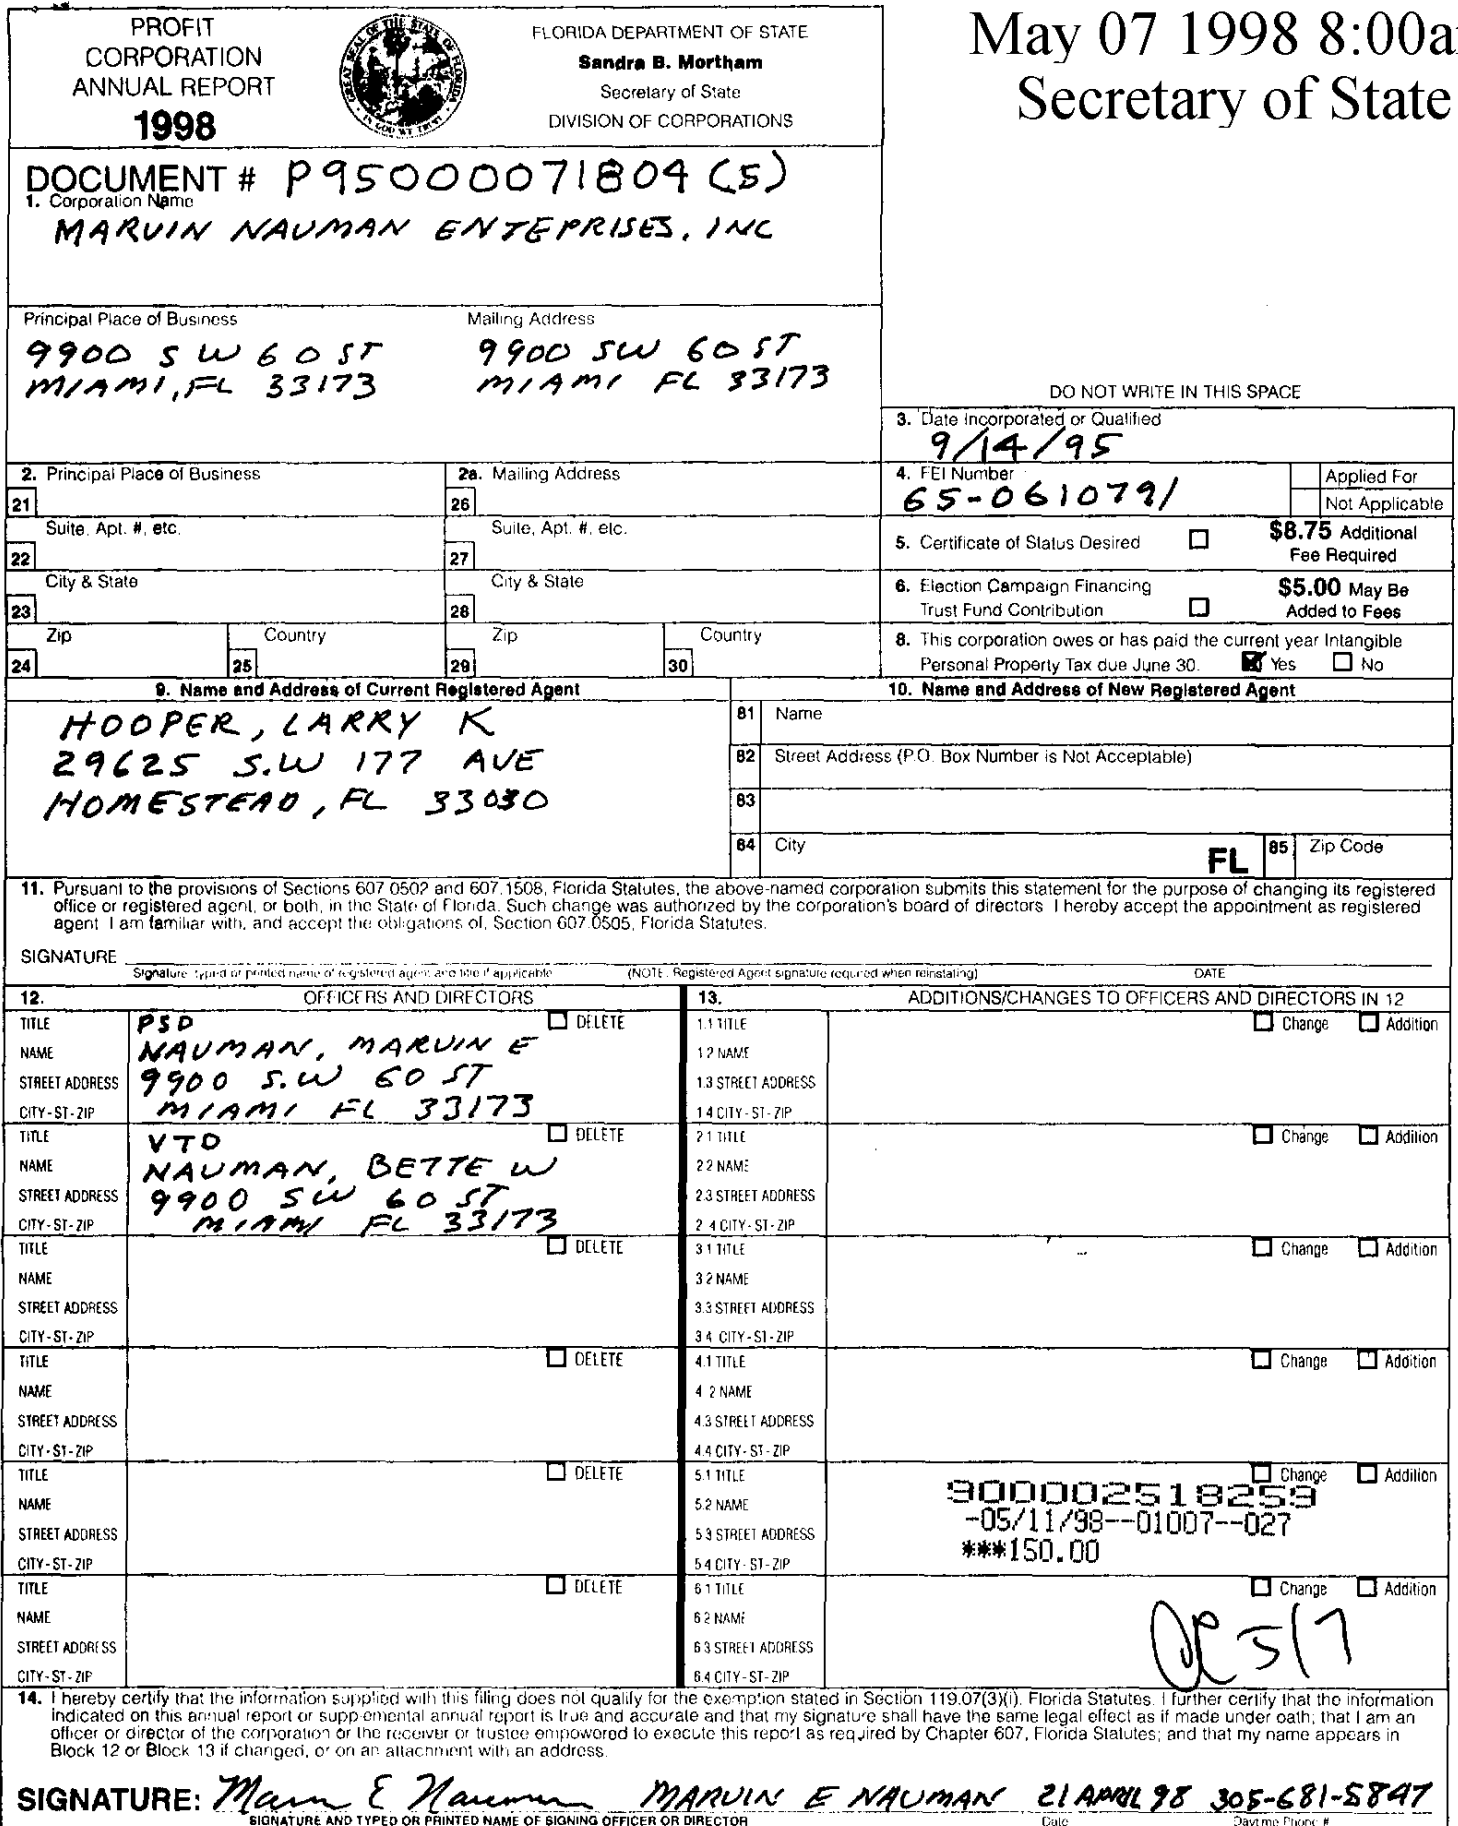 PROFIT
CORPORATION
ANNUAL REPORT
1998
GREAT SEAL OF THE STATE OF FLORIDA
IN GOD WE TRUST
FLORIDA DEPARTMENT OF STATE
Sandra B. Mortham
Secretary of State
DIVISION OF CORPORATIONS
May 07 1998 8:00a
Secretary of State
DOCUMENT # P95000071804 (5)
1. Corporation Name
MARVIN NAUMAN ENTEPRISES, INC
Principal Place of Business
9900 SW 60 ST
MIAMI, FL 33173
Mailing Address
9900 SW 60 ST
MIAMI FL 33173
DO NOT WRITE IN THIS SPACE
3. Date Incorporated or Qualified
9/14/95
2. Principal Place of Business
21
2a. Mailing Address
26
4. FEI Number
65-0610791
Applied For
Not Applicable
Suite, Apt. #, etc.
22
Suite, Apt. #, etc.
27
5. Certificate of Status Desired
$8.75 Additional
Fee Required
City & State
23
City & State
28
6. Election Campaign Financing
Trust Fund Contribution
$5.00 May Be
Added to Fees
Zip
24
Country
25
Zip
29
Country
30
8. This corporation owes or has paid the current year Intangible
Personal Property Tax due June 30. Yes No
9. Name and Address of Current Registered Agent
HOOPER, LARRY K
29625 S.W 177 AVE
HOMESTEAD, FL 33030
10. Name and Address of New Registered Agent
81 Name
82 Street Address (P.O. Box Number is Not Acceptable)
83
84 City
FL
85 Zip Code
11. Pursuant to the provisions of Sections 607.0502 and 607.1508, Florida Statutes, the above-named corporation submits this statement for the purpose of changing its registered
office or registered agent, or both, in the State of Florida. Such change was authorized by the corporation's board of directors. I hereby accept the appointment as registered
agent. I am familiar with, and accept the obligations of, Section 607.0505, Florida Statutes.
SIGNATURE
Signature, typed or printed name of registered agent and title if applicable
(NOTE: Registered Agent signature required when reinstating)
DATE
12. OFFICERS AND DIRECTORS
13. ADDITIONS/CHANGES TO OFFICERS AND DIRECTORS IN 12
TITLE PSD DELETE
NAME NAUMAN, MARVIN E
STREET ADDRESS 9900 S.W 60 ST
CITY-ST-ZIP MIAMI FL 33173
1.1 TITLE Change Addition
1.2 NAME
1.3 STREET ADDRESS
1.4 CITY-ST-ZIP
TITLE VTD DELETE
NAME NAUMAN, BETTE W
STREET ADDRESS 9900 SW 60 ST
CITY-ST-ZIP MIAMI FL 33173
2.1 TITLE Change Addition
2.2 NAME
2.3 STREET ADDRESS
2.4 CITY-ST-ZIP
TITLE DELETE
NAME
STREET ADDRESS
CITY-ST-ZIP
3.1 TITLE Change Addition
3.2 NAME
3.3 STREET ADDRESS
3.4 CITY-ST-ZIP
TITLE DELETE
NAME
STREET ADDRESS
CITY-ST-ZIP
4.1 TITLE Change Addition
4.2 NAME
4.3 STREET ADDRESS
4.4 CITY-ST-ZIP
TITLE DELETE
NAME
STREET ADDRESS
CITY-ST-ZIP
5.1 TITLE Change Addition
5.2 NAME
5.3 STREET ADDRESS
5.4 CITY-ST-ZIP
900002518259
-05/11/98--01007--027
***150.00
TITLE DELETE
NAME
STREET ADDRESS
CITY-ST-ZIP
6.1 TITLE Change Addition
6.2 NAME
6.3 STREET ADDRESS
6.4 CITY-ST-ZIP
5/7
14. I hereby certify that the information supplied with this filing does not qualify for the exemption stated in Section 119.07(3)(i), Florida Statutes. I further certify that the information
indicated on this annual report or supplemental annual report is true and accurate and that my signature shall have the same legal effect as if made under oath; that I am an
officer or director of the corporation or the receiver or trustee empowered to execute this report as required by Chapter 607, Florida Statutes; and that my name appears in
Block 12 or Block 13 if changed, or on an attachment with an address.
SIGNATURE: Marvin E Nauman MARVIN E NAUMAN 21 APRIL 98 305-681-5847
SIGNATURE AND TYPED OR PRINTED NAME OF SIGNING OFFICER OR DIRECTOR
Date
Daytime Phone #